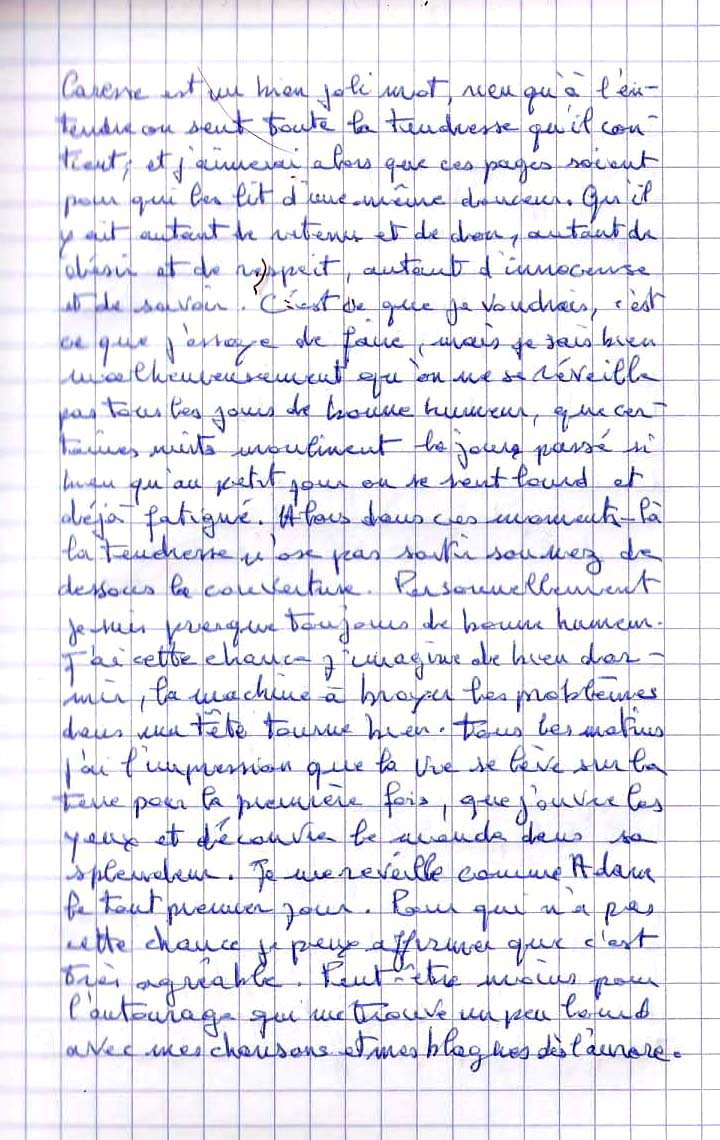 Caresse est un bien joli mot, rien qu'à l'en-
tendre on sent toute la tendresse qu'il con-
tient, et j'aimerai alors que ces pages soient
pour qui les lit d'une même douceur. Qu'il
y ait autant de retenue et de don, autant de
désir et de respect, autant d'innocense
et de savoir. C'est ce que je voudrais, c'est
ce que j'essaye de faire, mais je sais bien
malheureusement qu'on ne se réveille
pas tous les jours de bonne humeur, que cer-
taines nuits moulinent le jour passé si
bien qu'au petit jour on se sent lourd et
déjà fatigué. Alors dans ces moments-là
la tendresse n'ose pas sortir son nez de
dessous la couverture. Personnellement
je suis presque toujours de bonne humeur.
J'ai cette chance j'imagine de bien dor-
mir, la machine à broyer les problèmes
dans ma tête tourne bien. Tous les matins
j'ai l'impression que la vie se lève sur la
terre pour la première fois, que j'ouvre les
yeux et découvre le monde dans sa
splendeur. Je me réveille comme Adam
le tout premier jour. Pour qui n'a pas
cette chance je peux affirmer que c'est
très agréable. Peut-être moins pour
l'entourage qui me trouve un peu lourd
avec mes chansons et mes blagues dès l'aurore.